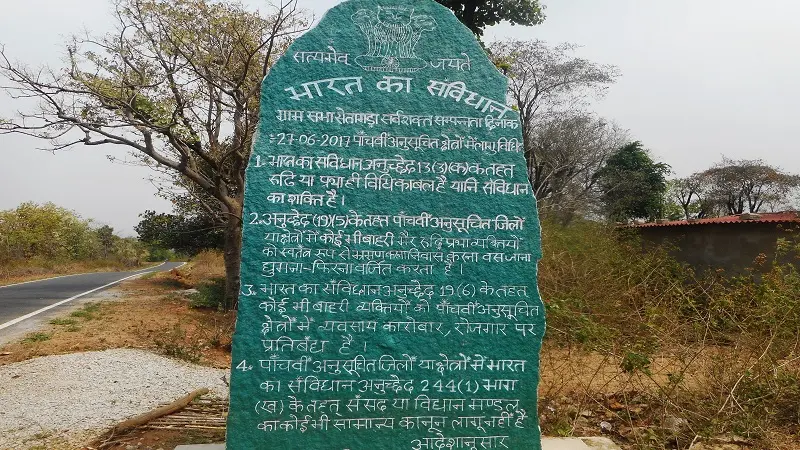 सत्यमेव जयते
भारत का संविधान
ग्राम सभा सर्वशक्त सम्पन्नता दिनांक
:27-06-2017 पाँचवीं अनुसूचित क्षेत्रों में लागू विधि
1. भारत का संविधान अनुच्छेद 13(3)(क) के तहत
रूढ़ि या प्रथा ही विधि का बल है यानि संविधान
का शक्ति है।
2. अनुच्छेद (19)(5) के तहत पाँचवीं अनुसूचित जिलों
या क्षेत्रों में कोई भी बाहरी गैर रूढ़ि प्रथा व्यक्तियों
को स्वतंत्र रूप से भ्रमण करना निवास करना बस जाना
घुमना-फिरना वर्जित करता है।
3. भारत का संविधान अनुच्छेद 19(6) के तहत
कोई भी बाहरी व्यक्तियों को पाँचवीं अनुसूचित
क्षेत्रों में व्यवसाय कारोबार, रोजगार पर
प्रतिबंध है।
4. पाँचवीं अनुसूचित जिलों या क्षेत्रों में भारत
का संविधान अनुच्छेद 244(1) भाग
(ख) के तहत् संसद या विधान मण्डल
का कोई भी सामान्य कानून लागू नहीं है
आदेशानुसार